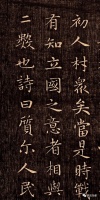 初人村眾矣當是時戰
有知立國之意者相與
二毀也詩曰質尔人民